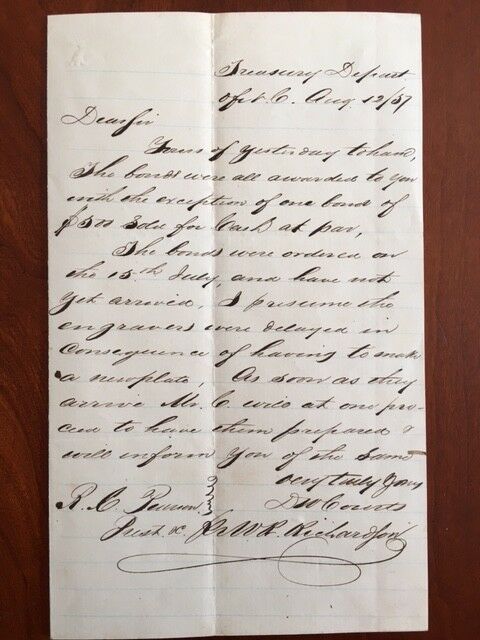 Treasury Depart
of N. C. Aug 12/57
Dear Sir
Yours of yesterday to hand,
The bonds were all awarded to you
with the exception of one bond of
$500 sold for Cash at par,
The bonds were ordered on
the 15th July, and have not
yet arrived, I presume the
engravers were delayed in
Consequence of having to make
a new plate, As soon as they
arrive Mr. C. will at one pro-
ceed to have them prepared &
will inform you of the same
very truly yours
D W Courts
R. C. Pearson
Prest &c pr W R. Richardson